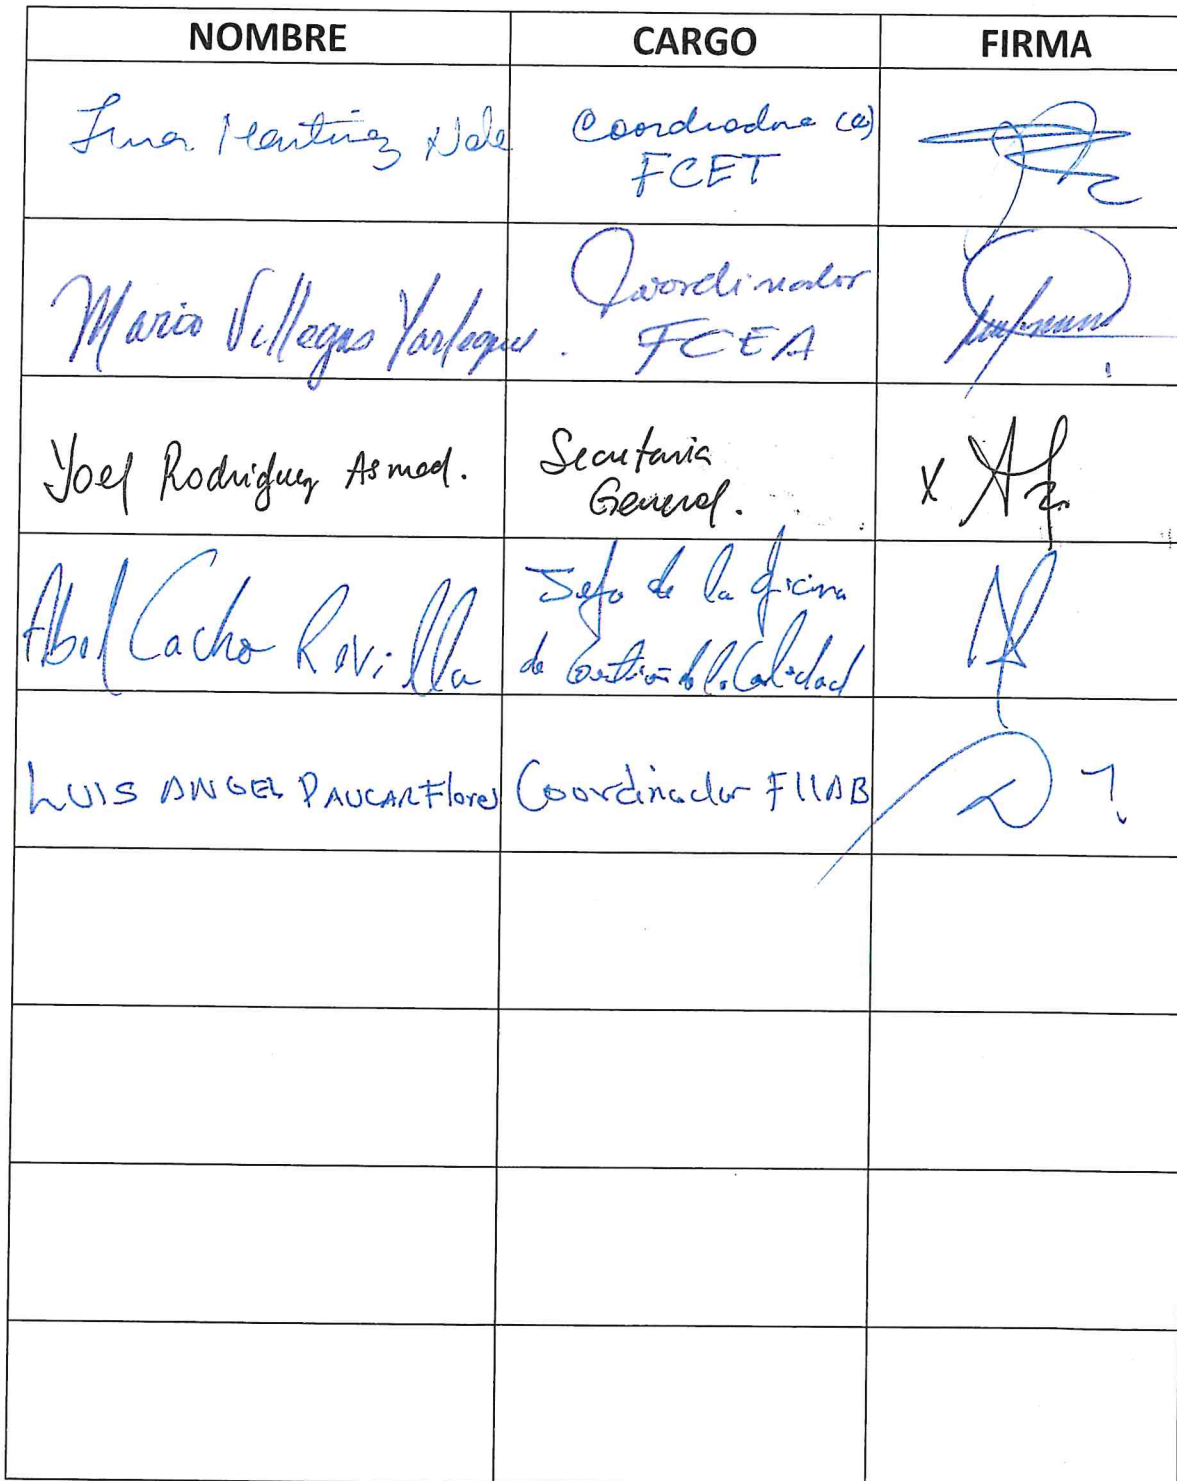 NOMBRE CARGO FIRMA
Martinez
Coordinadora (e)
FCET
Mario Villegas Yarleque.
Coordinador
FCEA
Yoel Rodriguez Asmad.
Secretaria
General.
x
Abel Cacho Revilla
Jefe de la Oficina
de Gestión de la Calidad
LUIS ANGEL PAUCAR Flores
Coordinador FIIAB